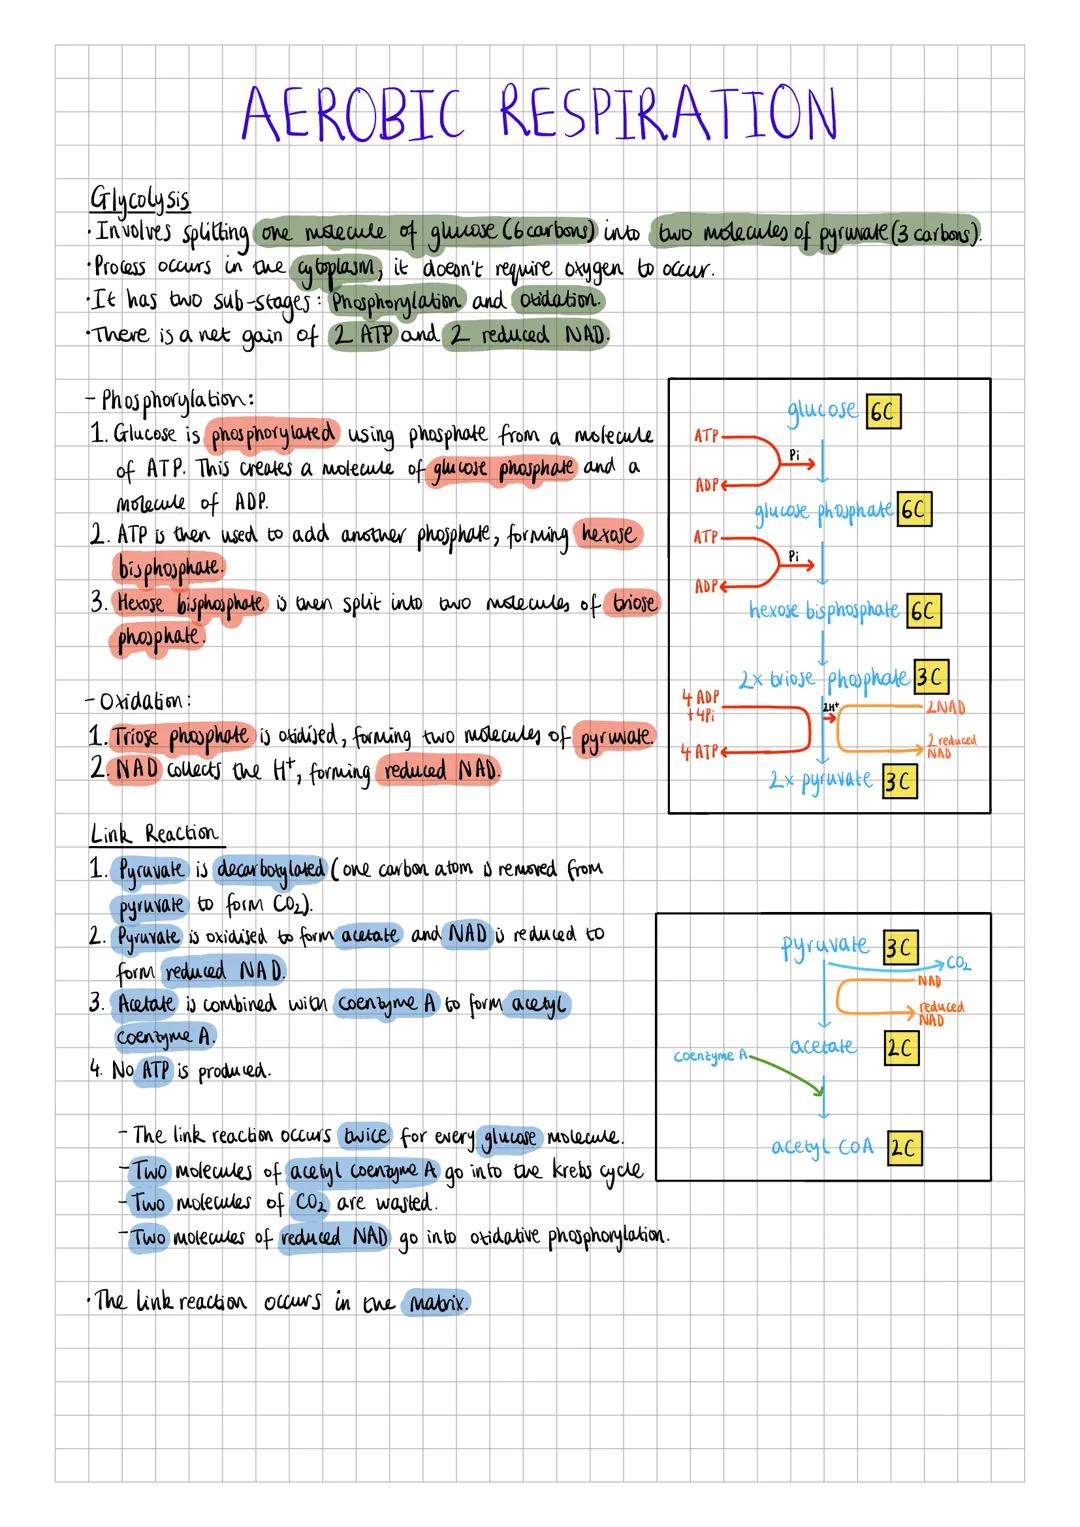 AEROBIC RESPIRATION
Glycolysis
·Involves splitting one molecule of glucose (6 carbons) into two molecules of pyruvate (3 carbons).
·Process occurs in the cytoplasm, it doesn't require oxygen to occur.
·It has two sub-stages: Phosphorylation and oxidation.
·There is a net gain of 2 ATP and 2 reduced NAD.
- Phosphorylation:
1. Glucose is phosphorylated using phosphate from a molecule
of ATP. This creates a molecule of glucose phosphate and a
molecule of ADP.
2. ATP is then used to add another phosphate, forming hexose
bisphosphate.
3. Hexose bisphosphate is then split into two molecules of triose
phosphate.
- Oxidation:
1. Triose phosphate is oxidised, forming two molecules of pyruvate.
2. NAD collects the H⁺, forming reduced NAD.
glucose 6C
ATP
Pi
ADP
glucose phosphate 6C
ATP
Pi
ADP
hexose bisphosphate 6C
2x triose phosphate 3C
4 ADP
+4Pi
2H⁺
2NAD
4 ATP
2 reduced
NAD
2x pyruvate 3C
Link Reaction
1. Pyruvate is decarboxylated (one carbon atom is removed from
pyruvate to form CO₂).
2. Pyruvate is oxidised to form acetate and NAD is reduced to
form reduced NAD.
3. Acetate is combined with coenzyme A to form acetyl
coenzyme A.
4. No ATP is produced.
- The link reaction occurs twice for every glucose molecule.
- Two molecules of acetyl coenzyme A go into the krebs cycle
- Two molecules of CO₂ are wasted.
- Two molecules of reduced NAD go into oxidative phosphorylation.
·The link reaction occurs in the matrix.
pyruvate 3C
CO₂
NAD
reduced
NAD
acetate 2C
coenzyme A
acetyl CoA 2C